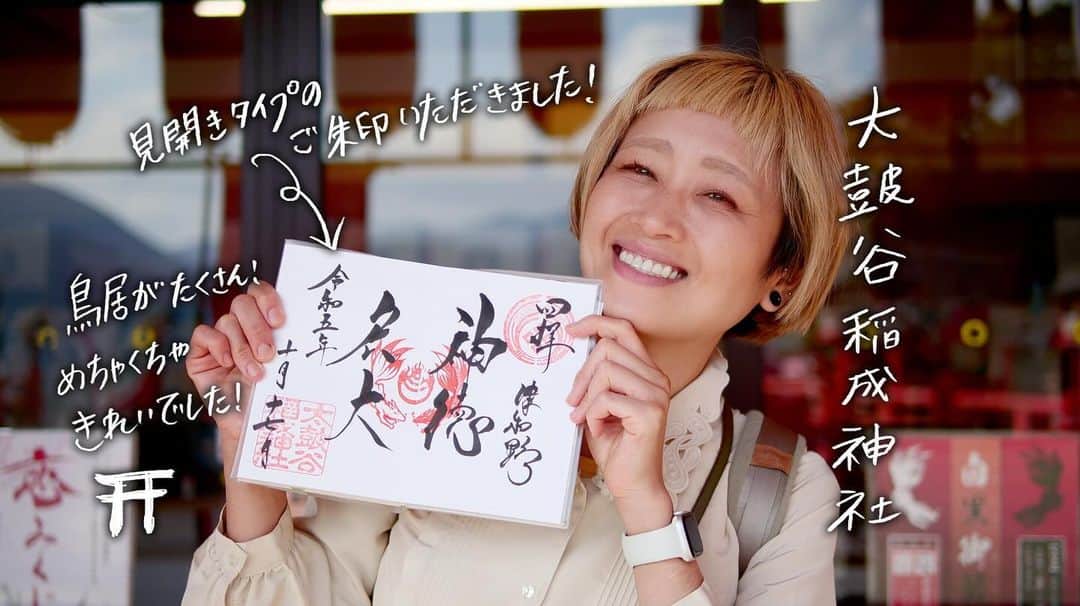 見開きタイプの
ご朱印いただきました!
大鼓谷稲成神社
鳥居がたくさん!
めちゃくちゃ
きれいでした!
四拝
津和野
神徳
大
令和五年
十月
大鼓谷
恋みくじ